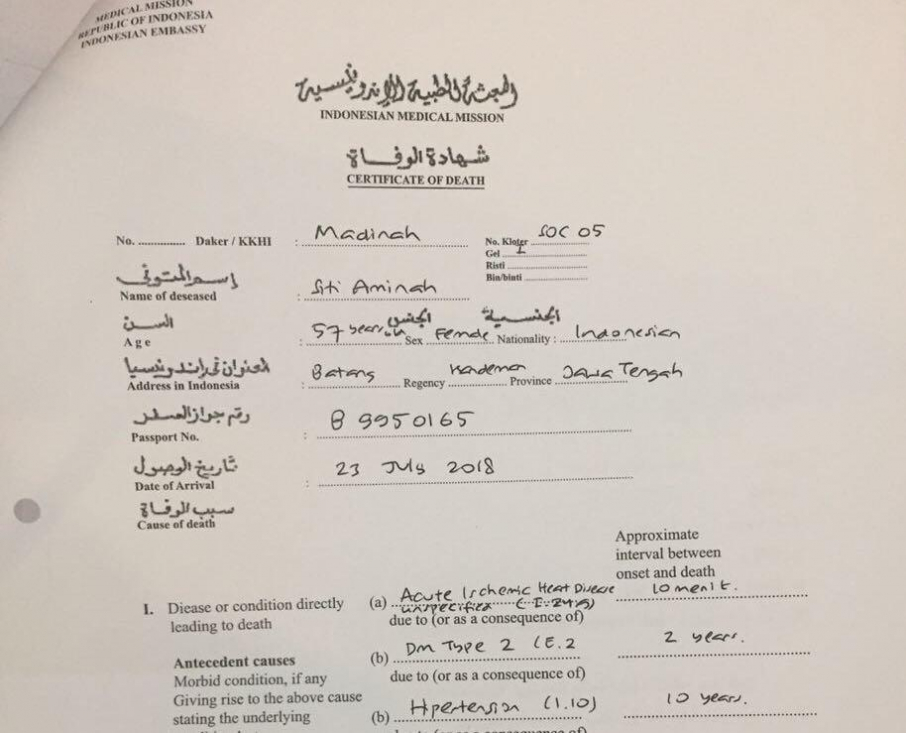 MEDICAL MISSION
REPUBLIC OF INDONESIA
INDONESIAN EMBASSY
البعثة الطبية الإندونيسية
INDONESIAN MEDICAL MISSION
شهادة الوفاة
CERTIFICATE OF DEATH
No. .............. Daker / KKHI : Madinah No. Kloter SOC 05
Gel I
Risti
Bin/binti
إسم المتوفى
Name of deseased : Siti Aminah
السن الجنس الجنسية
Age : 57 years Sex Female Nationality : Indonesian
العنوان في إندونيسيا
Address in Indonesia : Batang Regency Province Jawa Tengah
رقم جواز السفر
Passport No. : B 9950165
تاريخ الوصول
Date of Arrival : 23 July 2018
سبب الوفاة
Cause of death
Approximate
interval between
onset and death
I. Diease or condition directly (a) Acute Ischemic Heat Disease 10 menit.
leading to death unspecified (I.24.9)
due to (or as a consequence of)
Antecedent causes (b) Dm Type 2 (E.2 2 years.
Morbid condition, if any due to (or as a consequence of)
Giving rise to the above cause
stating the underlying (b) Hpertension (1.10) 10 years.